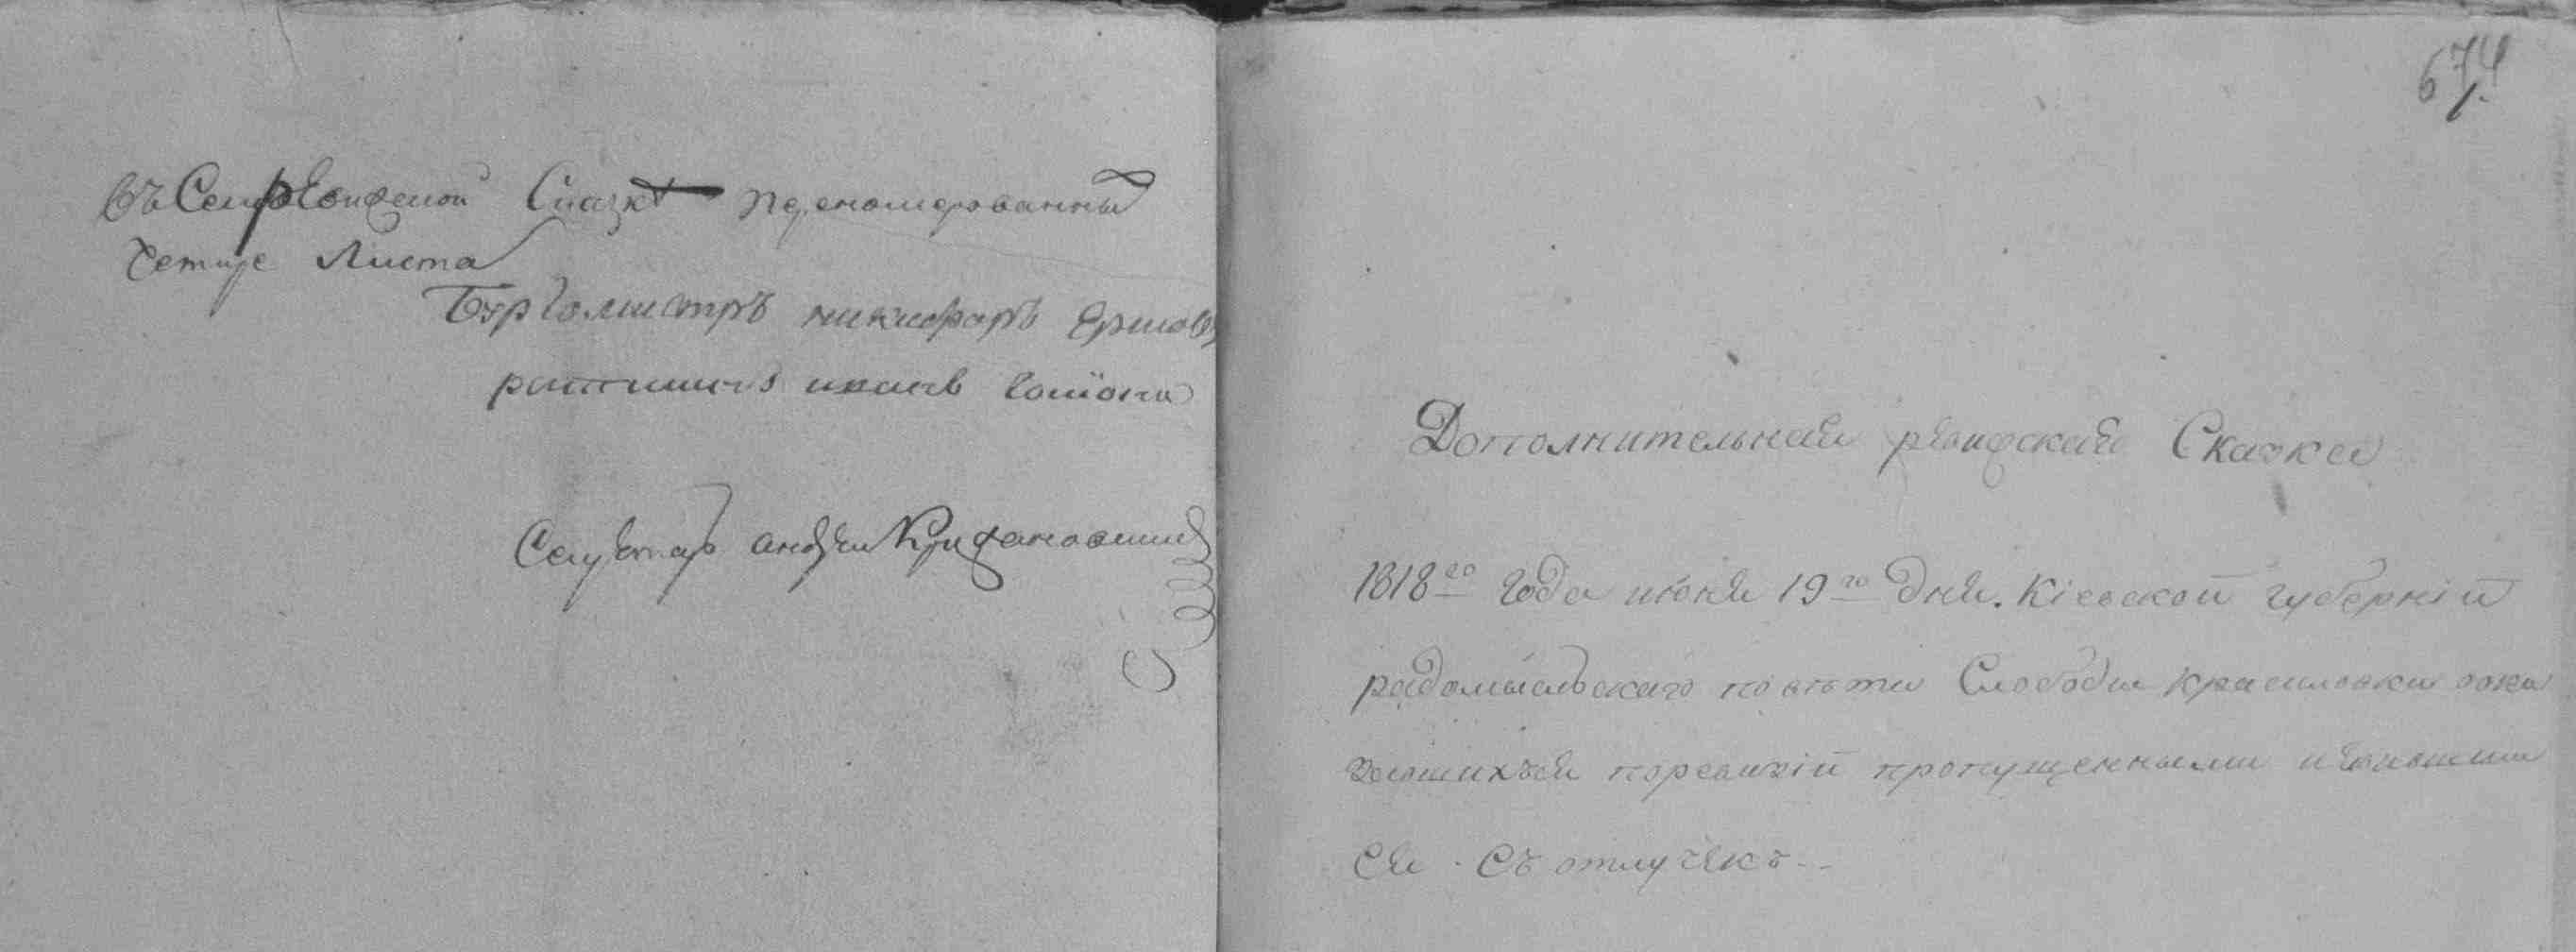 въ Сей ревизской Сказке переномерованных
Четире Листа
Бургомистръ никифоръ Ершовъ
ратманъ иванъ
Секретарь андрей Крижановский
674
Дополнительная ревизская Сказка
1818го года июня 19го дня. Кіевской губерніи
радомысльскаго повѣта Слободы красиловки ока
завшихся поревизіи пропущенными и явивши
ся. Съ отлучекъ..